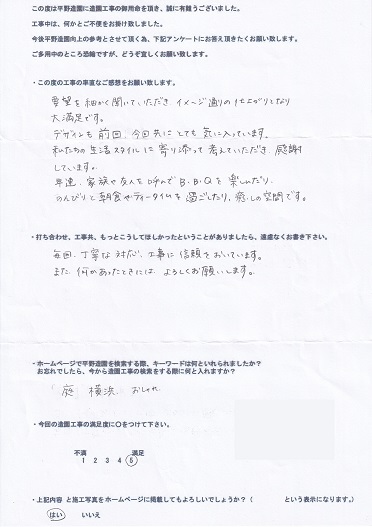 この度は平野造園に造園工事の御用命を頂き、誠に有難うございました。
工事中は、何かとご不便をお掛け致しました。
今後平野造園向上の参考とさせて頂く為、下記アンケートにお答え頂きたくお願い致します。
ご多用中のところ恐縮ですが、どうぞ宜しくお願い致します。
・この度の工事の率直なご感想をお願い致します。
要望を細かく聞いていただき、イメージ通りの仕上がりとなり
大満足です。
デザインも前回、今回共にとても気に入っています。
私たちの生活スタイルに寄り添って考えていただき、感謝
しています。
年連、家族や友人を呼んでB・B・Qを楽しんだり、
のんびりと朝食やティータイムを過ごしたり、癒しの空間です。
・打ち合わせ、工事共、もっとこうしてほしかったということがありましたら、遠慮なくお書き下さい。
毎回、丁寧な対応、工事に信頼をおいています。
また何かあったときには、よろしくお願いします。
・ホームページで平野造園を検索する際、キーワードは何といれられましたか?
お忘れでしたら、今から造園工事の検索をする際に何と入れますか?
「庭 横浜 おしゃれ
・今回の造園工事の満足度に○をつけて下さい。
不満 満足
1 2 3 4 5
・上記内容 と施工写真をホームページに掲載してもよろしいでしょうか?( という表示になります。)
はい いいえ